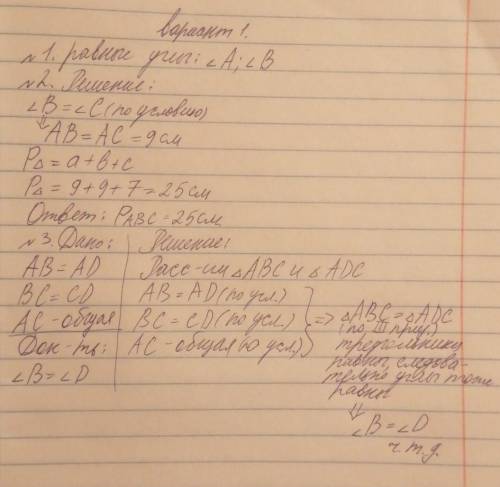 вариант 1.
№1. равные углы: ∠A; ∠B
№2. Решение:
∠B = ∠C (по условию)
⇓
AB = AC = 9 см
P△ = a + b + c
P△ = 9 + 9 + 7 = 25 см
Ответ: P ABC = 25 см
№3. Дано:
AB = AD
BC = CD
AC - общая
Док-ть:
∠B = ∠D
Решение:
Расс-им △ABC и △ADC
AB = AD (по усл.)
BC = CD (по усл.)
AC - общая (по усл.)
=> △ABC = △ADC
(по III приз.)
треугольники
равны, следова-
тельно углы тоже
равны
⇓
∠B = ∠D
ч.т.д.